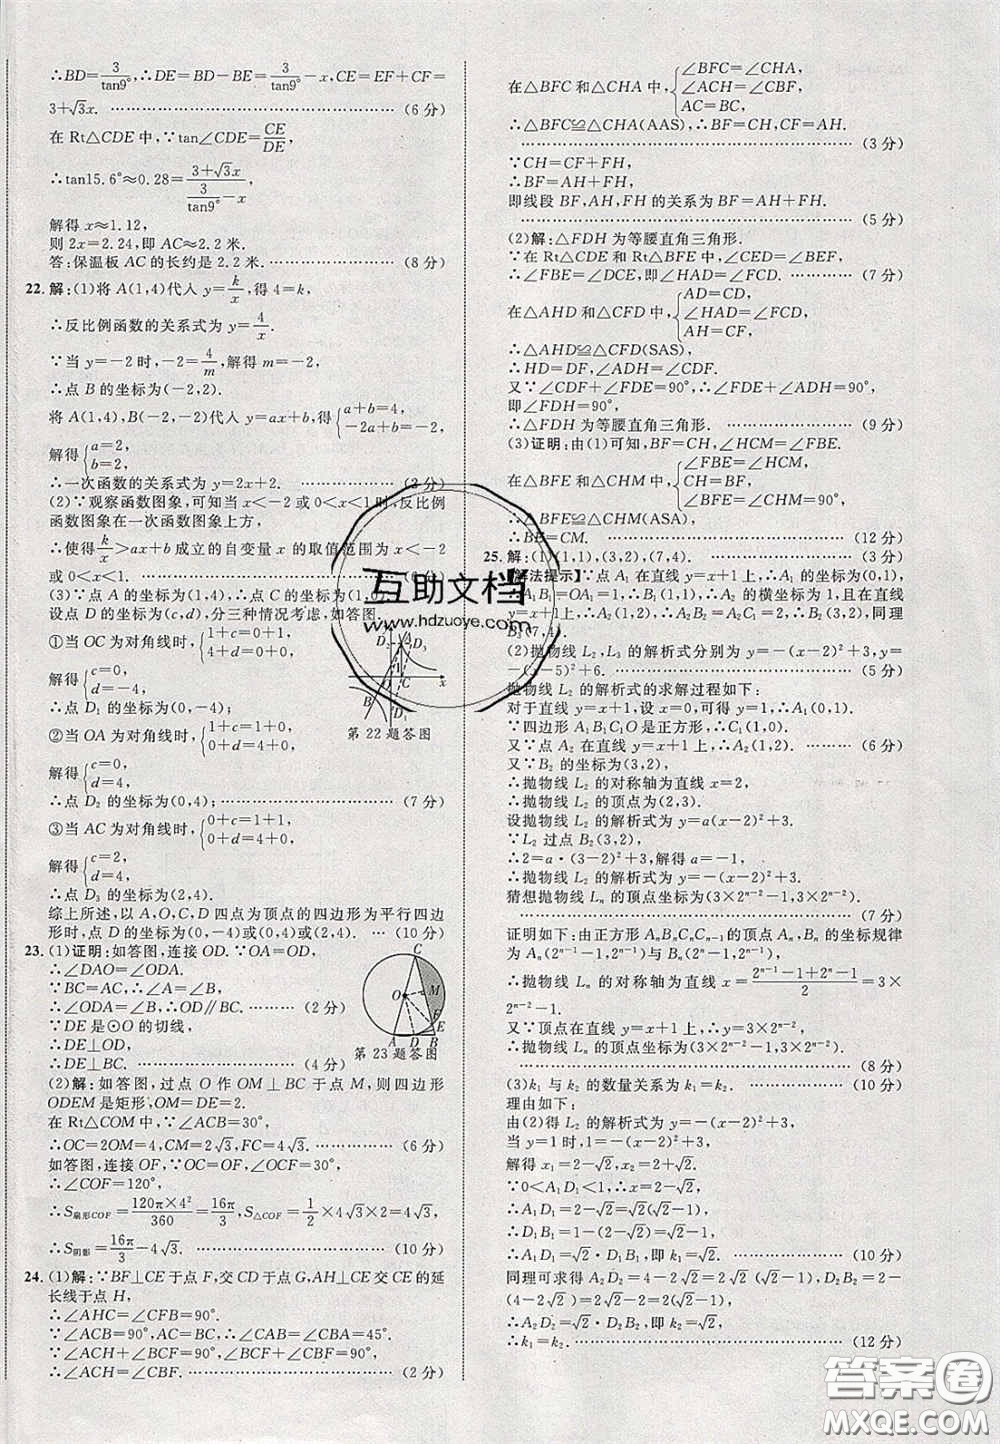 ∴BD=3/tan9°,∴DE=BD-BE=3/tan9°-x,CE=EF+CF=
3+√3x. (6 分)
在 Rt△CDE 中,∵tan∠CDE=CE/DE,
∴tan15.6°≈0.28=(3+√3x)/(3/tan9°-x),
解得 x≈1.12,
则 2x=2.24,即 AC≈2.2 米.
答:保温板 AC 的长约是 2.2 米. (8 分)
22. 解:(1)将 A(1,4)代入 y=k/x,得 4=k,
∴反比例函数的关系式为 y=4/x.
∵当 y=-2 时,-2=4/m,解得 m=-2,
∴点 B 的坐标为(-2,2).
将 A(1,4),B(-2,-2)代入 y=ax+b,得{a+b=4,
-2a+b=-2,
解得{a=2,
b=2,
∴一次函数的关系式为 y=2x+2. (2 分)
(2)∵观察函数图象,可知当 x<-2 或 0<x<1 时,反比例
函数图象在一次函数图象上方,
∴使得 k/x>ax+b 成立的自变量 x 的取值范围为 x<-2
或 0<x<1. (6 分)
(3)∵点 A 的坐标为(1,4),∴点 C 的坐标为(1,0).
设点 D 的坐标为(c,d),分三种情况考虑,如答图.
①当 OC 为对角线时,{1+c=0+1,
4+d=0+0,
解得{c=0,
d=-4,
∴点 D₁ 的坐标为(0,-4);
②当 OA 为对角线时,{1+c=0+1,
0+d=4+0,
解得{c=0,
d=4,
∴点 D₂ 的坐标为(0,4); (7 分)
③当 AC 为对角线时,{0+c=1+1,
0+d=4+0,
解得{c=2,
d=4,
∴点 D₃ 的坐标为(2,4).
综上所述,以 A,O,C,D 四点为顶点的四边形为平行四边
形时,点 D 的坐标为(0,-4)或(0,4)或(2,4). (10 分)
第 22 题答图
23. (1)证明:如答图,连接 OD.∵OA=OD,
∴∠DAO=∠ODA.
∵BC=AC,∴∠A=∠B,
∴∠ODA=∠B,∴OD∥BC. (2 分)
∵DE 是⊙O 的切线,
∴DE⊥OD,
∴DE⊥BC. (4 分)
第 23 题答图
(2)解:如答图,过点 O 作 OM⊥BC 于点 M,则四边形
ODEM 是矩形,OM=DE=2.
在 Rt△COM 中,∵∠ACB=30°,
∴OC=2OM=4,CM=2√3,FC=4√3. (6 分)
如答图,连接 OF,∵∠OCF=30°,
∴∠COF=120°,
∴S扇形COF=120π×4²/360=16π/3,S△COF=1/2×4√3×2=4√3,
∴S阴影=16π/3-4√3. (10 分)
24. (1)解:∵BF⊥CE 于点 F,交 CD 于点 G,AH⊥CE 交 CE 的延
长线于点 H,
∴∠AHC=∠CFB=90°.
∵∠ACB=90°,AC=BC,∴∠CAB=∠CBA=45°.
∵∠ACH+∠BCF=90°,∠BCF+∠CBF=90°,
∴∠ACH=∠CBF. (2 分)
在△BFC 和△CHA 中,{∠BFC=∠CHA,
∠ACH=∠CBF,
AC=BC,
∴△BFC≌△CHA(AAS),∴CF=AH.
(3 分)
∵CH=CF+FH,
∴BF=AH+FH,
即线段 BF,AH,FH 的关系为 BF=AH+FH.
(5 分)
(2)解:△FDH 为等腰直角三角形.
∵在 Rt△CDE 和 Rt△BFE 中,∠CED=∠BEF,
∴∠FBE=∠DCE,即∠HAD=∠FCD. (7 分)
在△AHD 和△CFD 中,{AD=CD,
∠HAD=∠FCD,
AH=CF,
∴△AHD≌△CFD(SAS),
∴HD=DF,∠ADH=∠CDF.
又∵∠CDF+∠FDE=90°,∴∠FDE+∠ADH=90°,
即∠FDH=90°,
∴△FDH 为等腰直角三角形. (9 分)
(3)证明:由(1)可知,BF=CH,∠HCM=∠FBE.
在△BFE 和△CHM 中,{∠HCM=∠FBE,
CH=BF,
∠BFE=∠CHM=90°,
∴△BFE≌△CHM(ASA),
∴BE=CM. (12 分)
25. 解:(1)(1,1),(3,2),(7,4). (3 分)
【解法提示】∵点 A₁ 在直线 y=x+1 上,∴A₁ 的坐标(0,1),
∴A₁B₁=OA₁=1,∴A₂ 的横坐标为 1,且在直线
y=x+1 上,∴A₂(1,2),∴A₂B₂=2,∴B₂(3,2),同理
B₃(7,4).
(2)抛物线 L₂,L₃ 的解析式分别为 y=-(x-2)²+3,y=
-(x-5)²+6. (5 分)
抛物线 L₂ 的解析式的求解过程如下:
对于直线 y=x+1,设 x=0,可得 y=1,∴A₁(0,1).
∵四边形 A₁B₁C₁O 是正方形,∴C₁(1,0).
又∵点 A₂ 在直线 y=x+1 上,∴A₂(1,2). (6 分)
又∵B₂ 的坐标为(3,2),
∴抛物线 L₂ 的对称轴为直线 x=2,
∴抛物线 L₂ 的顶点为(2,3).
设抛物线 L₂ 的解析式为 y=a(x-2)²+3.
∵L₂ 过点 B₂(3,2),
∴2=a·(3-2)²+3,解得 a=-1,
∴抛物线 L₂ 的解析式为 y=-(x-2)²+3.
猜想抛物线 Lₙ 的顶点坐标为(3×2ⁿ⁻²-1,3×2ⁿ⁻²).
(7 分)
证明如下:由正方形 AₙBₙCₙCₙ₋₁ 的顶点 Aₙ,Bₙ 的坐标规律
为 Aₙ(2ⁿ⁻¹-1,2ⁿ⁻¹)与 Bₙ(2ⁿ-1,2ⁿ⁻¹),
∴抛物线 Lₙ 的对称轴为直线 x=(2ⁿ⁻¹-1+2ⁿ-1)/2=3×
2ⁿ⁻²-1.
又∵顶点在直线 y=x+1 上,
∴抛物线 Lₙ 的顶点坐标为(3×2ⁿ⁻²-1,3×2ⁿ⁻²).
(8 分)
(3)k₁ 与 k₂ 的数量关系为 k₁=k₂. (10 分)
理由如下:
由(2)得 L₂ 的解析式为 y=-(x-2)²+3,
当 y=1 时,1=-(x-2)²+3,
解得 x₁=2-√2,x₂=2+√2.
∵0<A₁D₁<1,∴x=2-√2,
∴A₁D₁=2-√2=√2(√2-1),
∴D₁B₁=1-(2-√2)=√2-1,
∴A₁D₁=√2·D₁B₁,即 k₁=√2. (10 分)
同理可求得 A₂D₂=4-2√2=2√2(√2-1),D₂B₂=2
-(4-2√2)=2√2-2=2(√2-1),
∴A₂D₂=√2·D₂B₂,即 k₂=√2,
∴k₁=k₂. (12 分)
互助文档
www.hdzuoye.com
答案圈
MXQE.COM